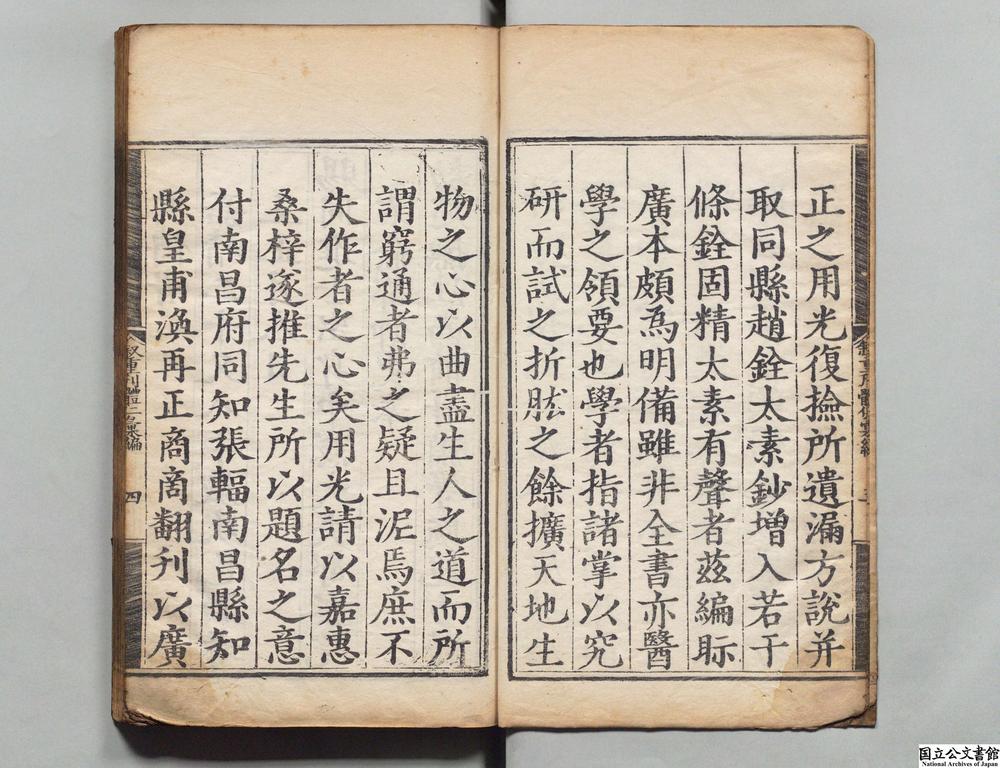 正之用光復撿所遺漏方說并
取同縣趙銓太素鈔增入若干
條銓固精太素有聲者茲編眎
廣本頗為明備雖非全書亦醫
學之領要也學者指諸掌以究
研而試之折肱之餘擴天地生
物之心以曲盡生人之道而所
謂窮通者弗之疑且泥焉庶不
失作者之心矣用光請以嘉惠
桑梓遂推先生所以題名之意
付南昌府同知張輻南昌縣知
縣皇甫渙再正商商翻刋以廣
四
国立公文書館
National Archives of Japan